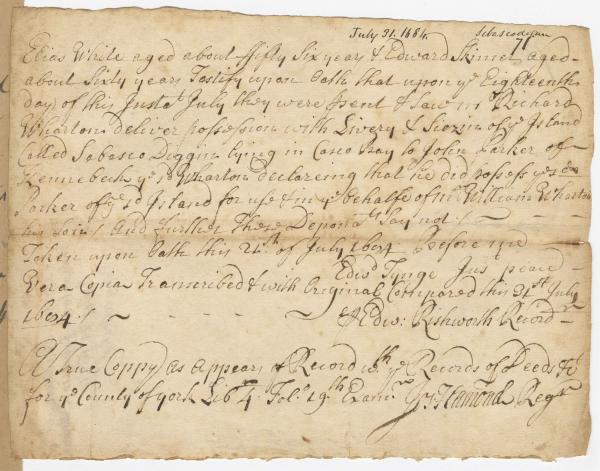 July 31. 1684. Sebascodegan
77
Elias White aged about ffifty Six years & Edward Skinner aged
about Sixty years Testify upon Oath that upon ye Eighteenth
day of this Instt July they were psent & Saw mr Richard
Wharton deliver possession with Livery & Seizin of ye Island
Called Sabasco Diggin lying in Casco Bay to John Parker of
Kennebeck ye sd Wharton declareing that he did possess ye sd
Parker of ye sd Island for use & in ye behalfe of mr William Wharton
his Son / And further These Deponts Say not / ~ - - -
Taken upon Oath this 24th of July 1684 Before me
Edwd Tynge Jus peace
Vera Copia Transcribed & with Original Compared this 31st July
1684 / ~ - ~ - P Edw: Rishworth Record
A True Coppy as appears of Record wth ye Records of Deeds &c
for ye County of york Lib 4. Fol. 19th Examd P Jos Hamond Regr